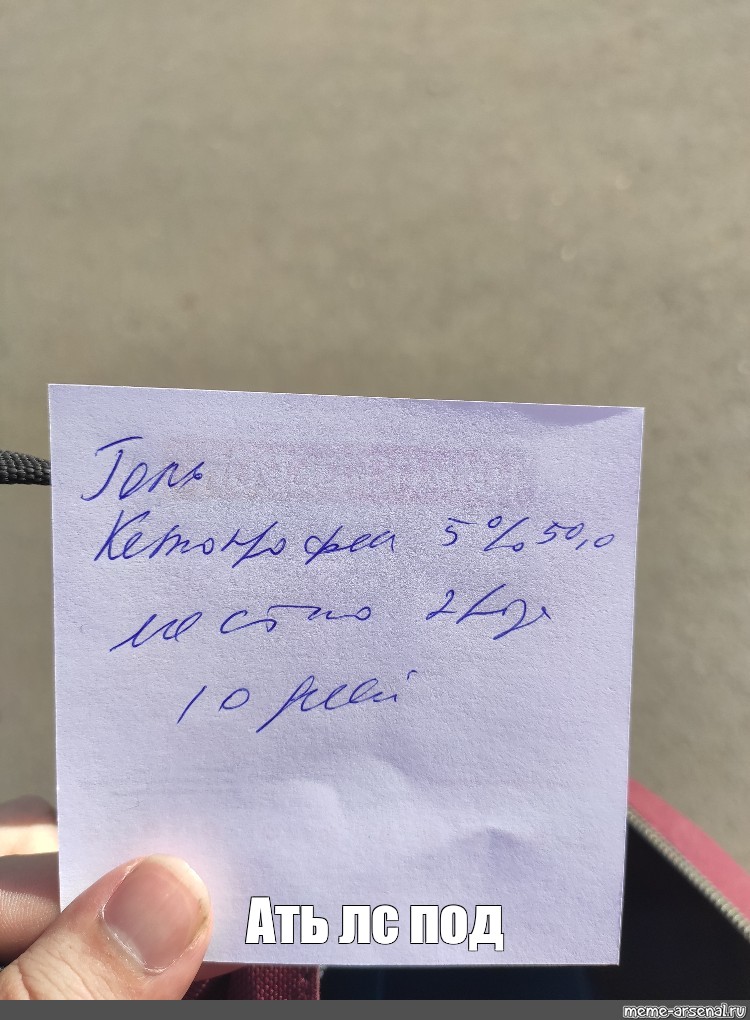 Гель
Кетопрофен 5% 50,0
местно 2 р/д
10 дней
Ать лс под
meme-arsenal.ru